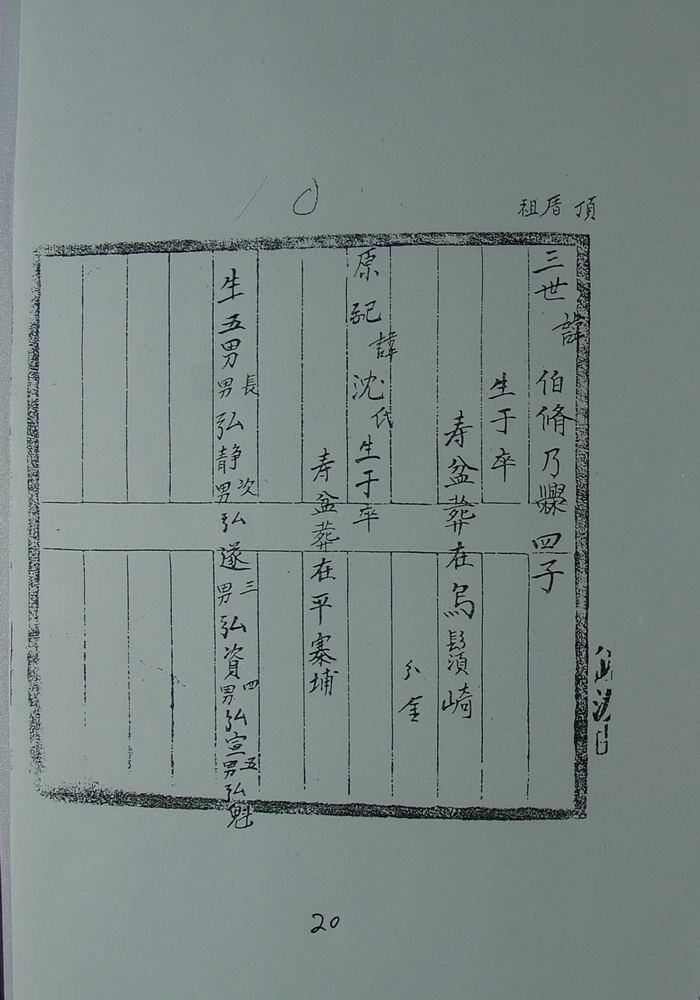 祖厝 頂
三世 諱 伯脩乃㸑四子
生于 卒
寿盆葬在烏鬚崎
分金
原配 諱 沈氏 生于 卒
寿盆葬在平寨埔
生五男 長男弘静 次男弘遂 三男弘資 四男弘宣 五男弘魁
20